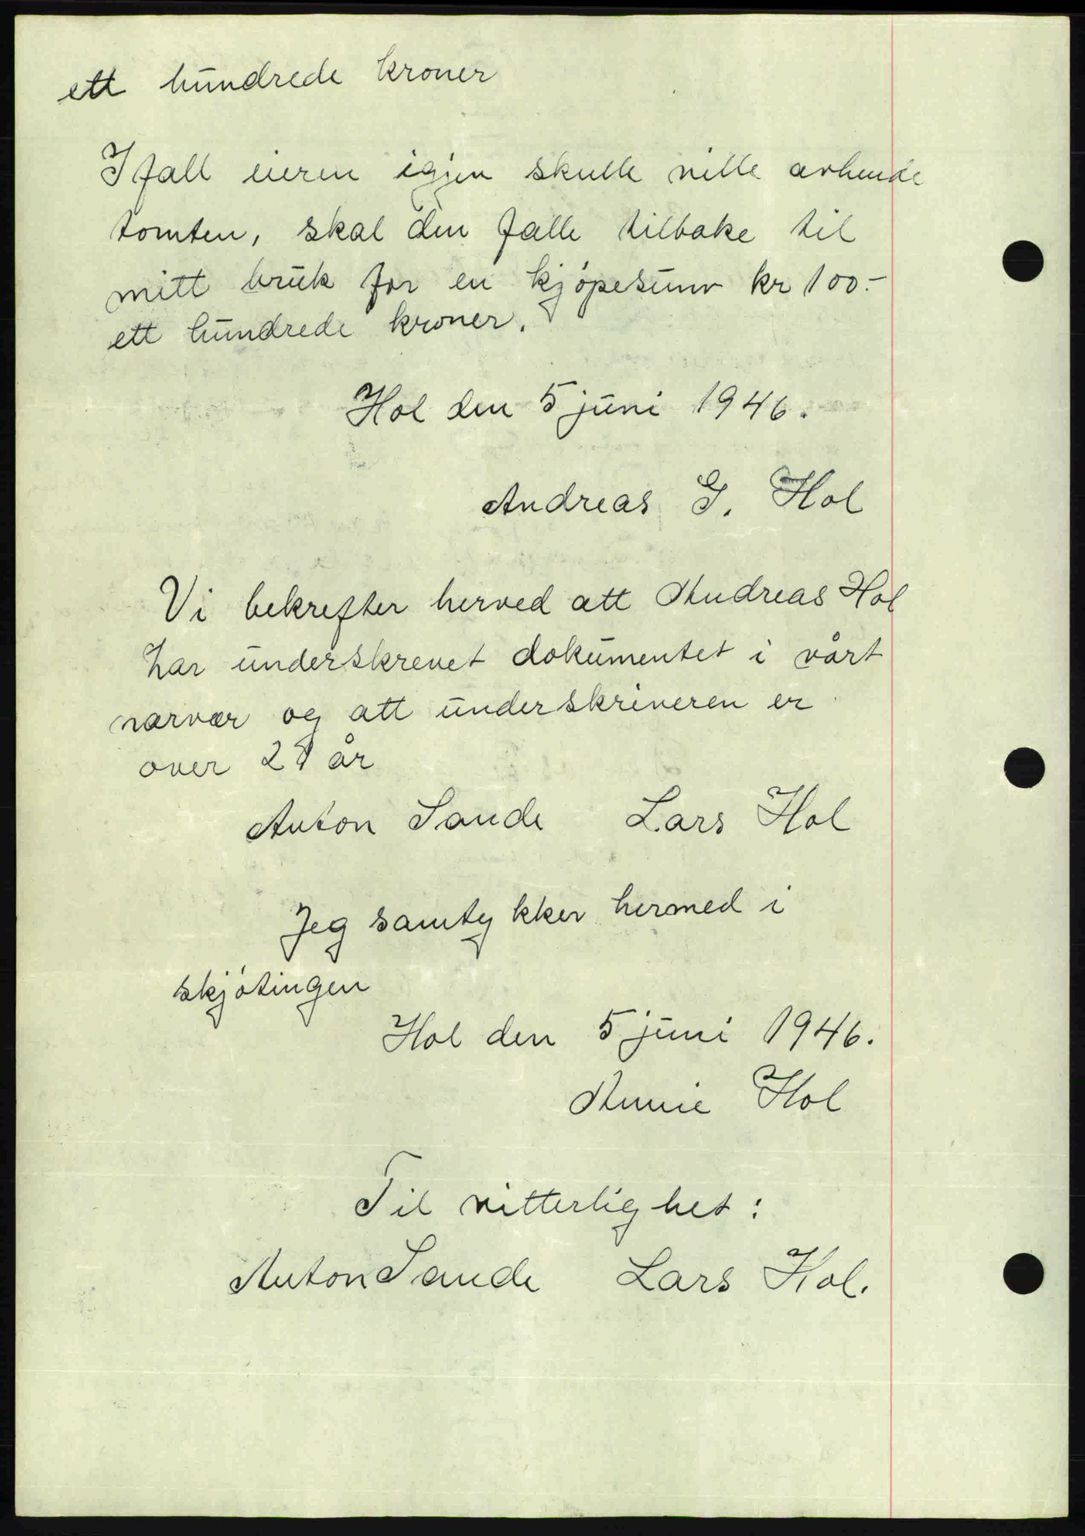 ett hundrede kroner
I fall eieren igjen skulle ville avhende
tomten, skal den falle tilbake til
mitt bruk for en kjøpesum kr 100.-
ett hundrede kroner.
Hol den 5 juni 1946.
Andreas G. Hol
Vi bekrefter herved att Andreas Hol
har underskrevet dokumentet i vårt
nærvær og att underskriveren er
over 21 år
Anton Sande Lars Hol
Jeg samtykker hermed i
skjøtingen
Hol den 5 juni 1946.
Annie Hol
Til vitterlighet:
Anton Sande Lars Hol.